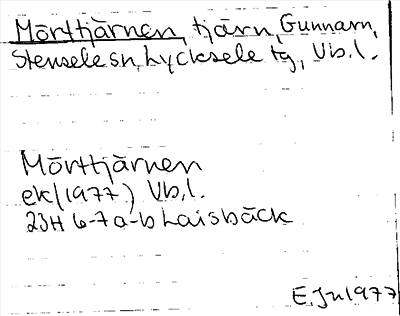 Mörttjärnen, tjärn, Gunnarn,
Stensele sn, Lycksele tg, Vb.l.
Mörttjärnen
ek (1977) Vb.l.
23H 6-7 a-b Laisbäck
E. Jn 1977